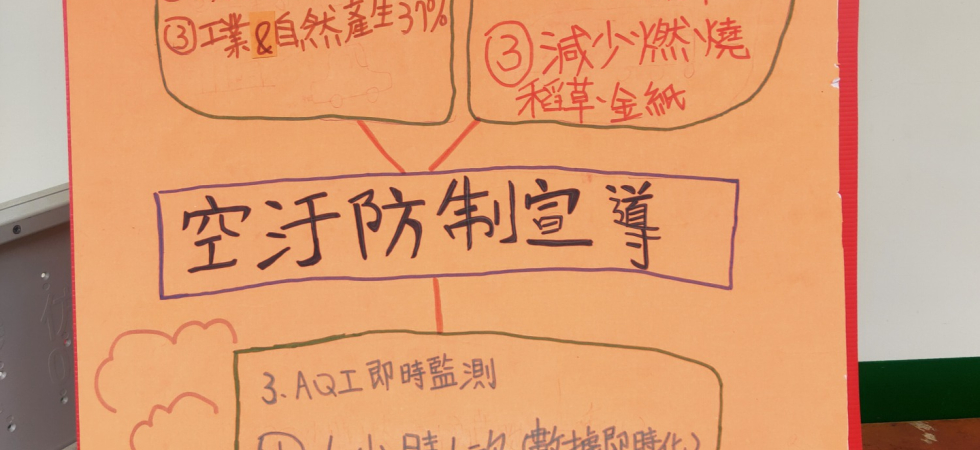 ③工業&自然產生37%
③減少燃燒
稻草、金紙
空汙防制宣導
3.AQI即時監測
小時一次(數據即時化)